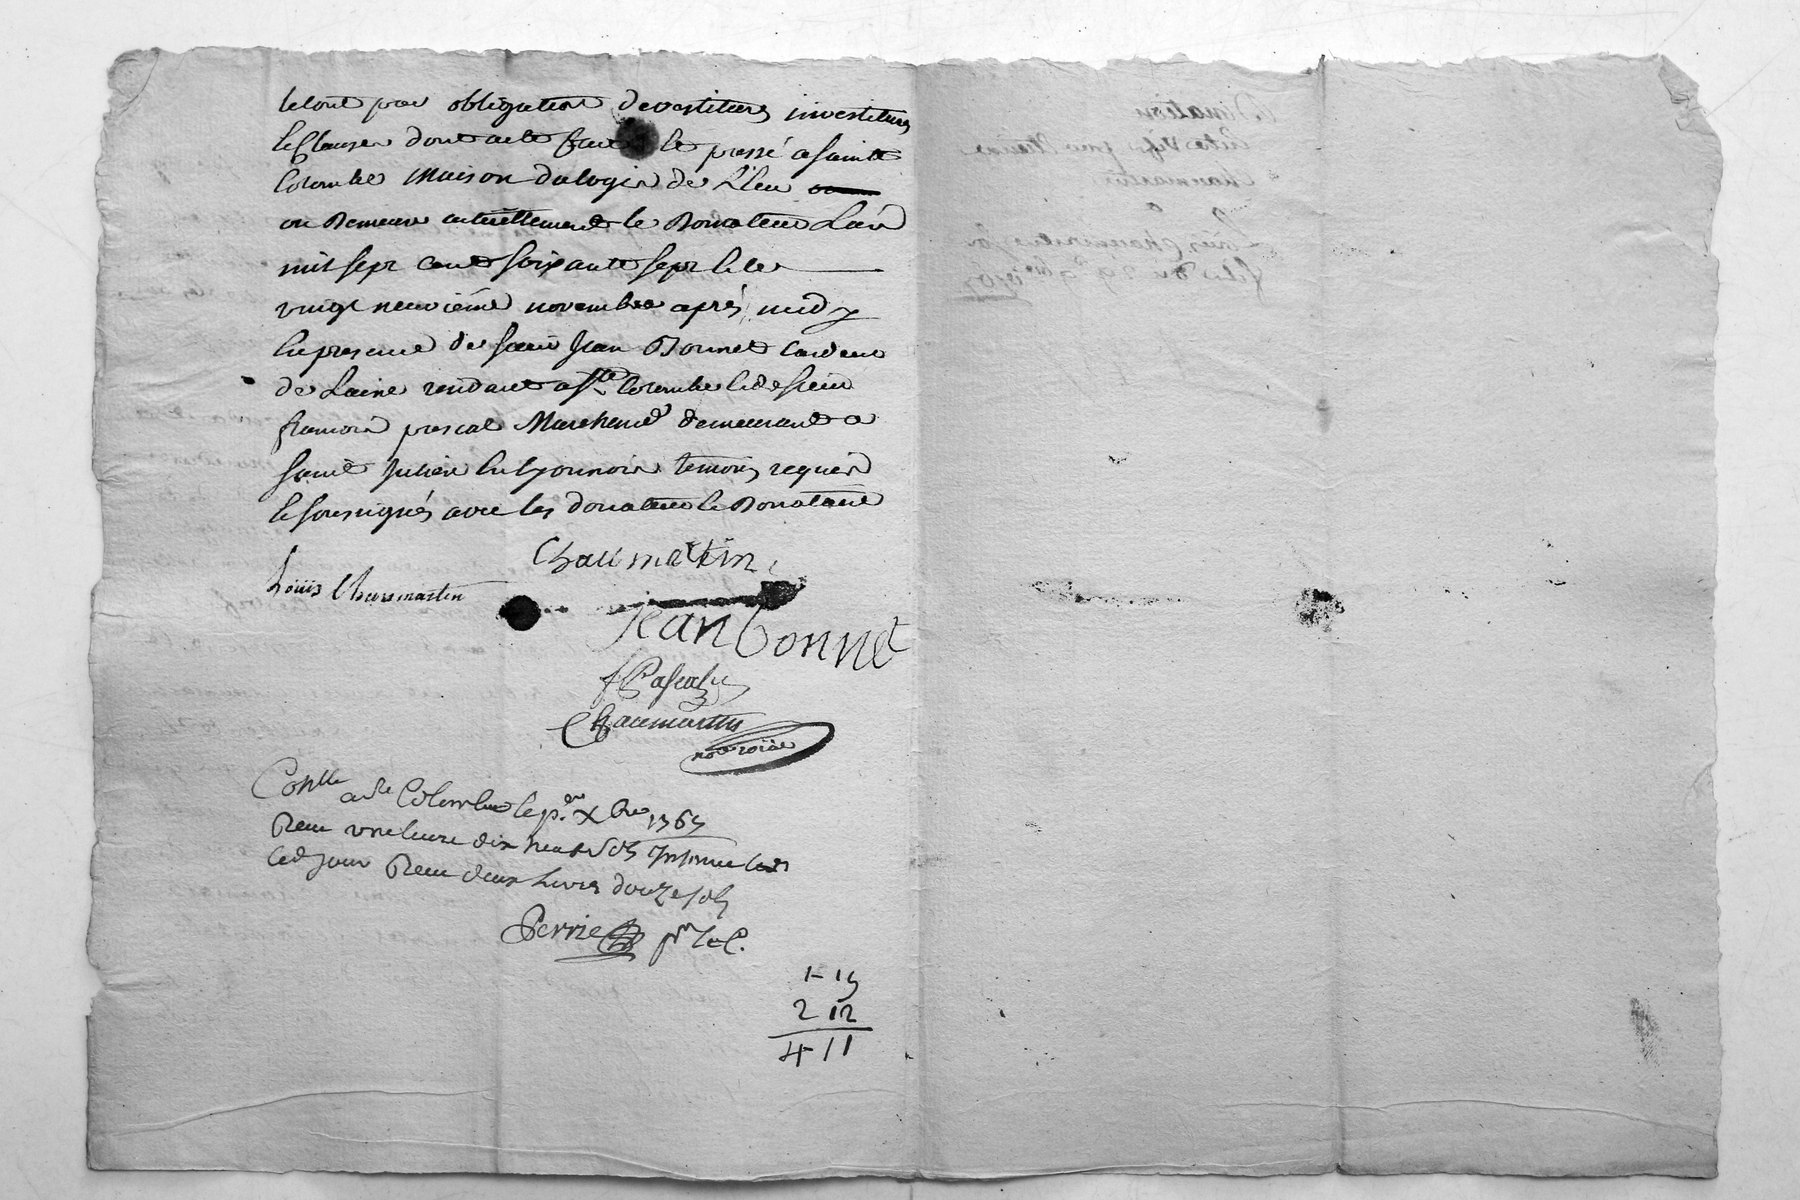 le tout par obligation devestiture investiture
& clauses dont acte fait & passé a sainte
Colombe Maison du logis de L'lieu
ou Demeure actuellement le Donateur L'an
mil sept cent soixante sept & le
vingt neuvième novembre après midy
En presence de sieur Jean Bonnet Cardeur
de Laine residant a Ste Colombe & de sieur
françois pascal Marchand demeurant a
saint Julien En lyonnois temoins requis
& soussignés avec les donateur & Donataire
Chaumartin
Louis Chaumartin
Jean bonnet
f Pascal
Chaumartin
not roial
Conlle a Ste Colombe le pr. Xbre 1767
Reçu une livre dix neuf sols Insinué led
jour Reçu deux livres douze sols
Perrie
1-19
2 12
4 11
Donation
Chaumartin
Louis Chaumartin